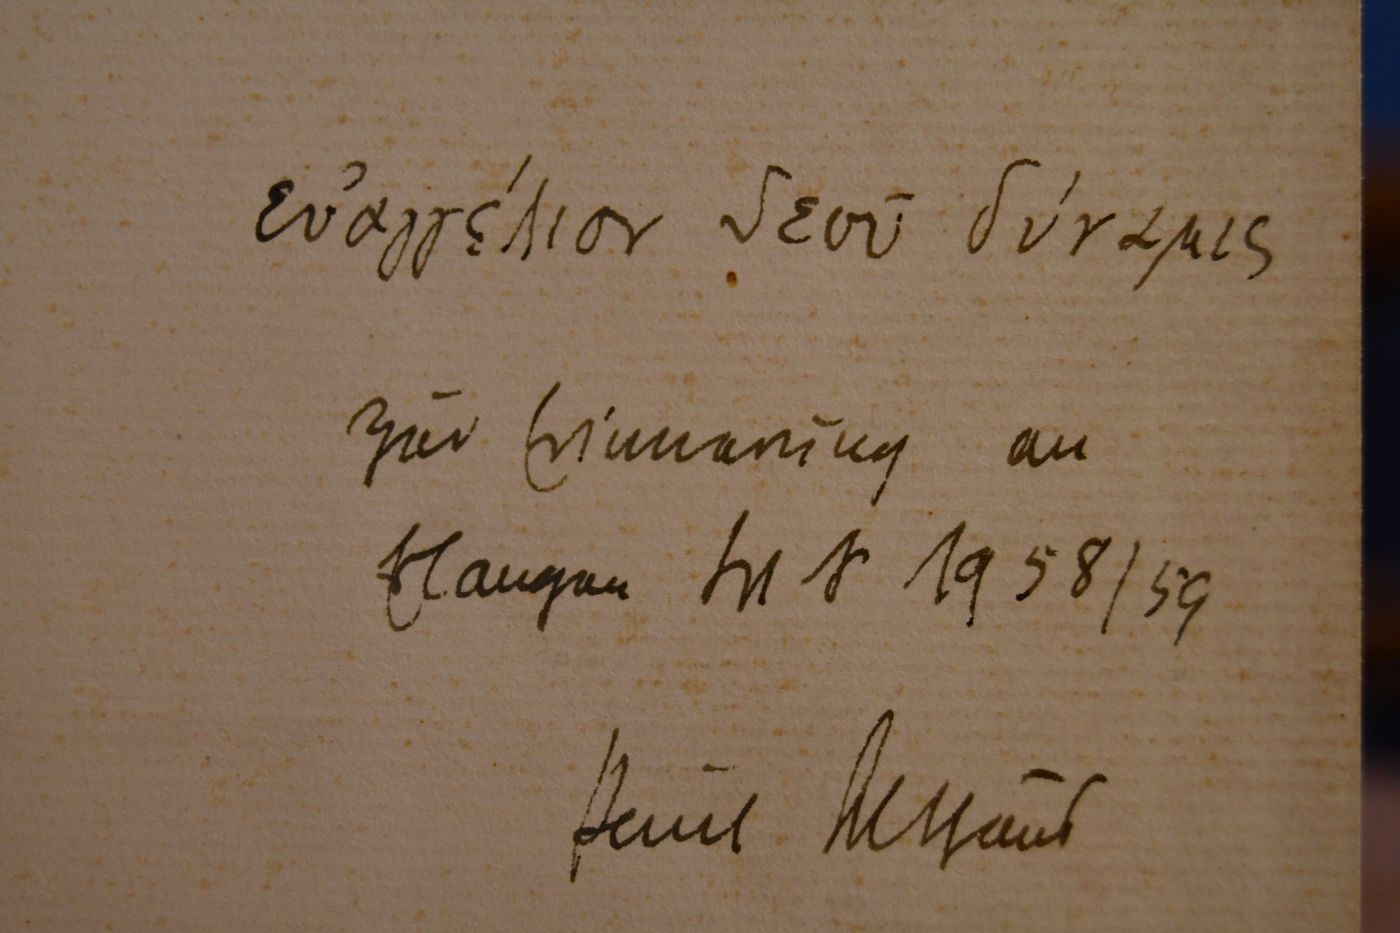 εὐαγγέλιον θεοῦ δύναμις
zur Erinnerung an
Erlangen WS 1958/59
Paul Althaus